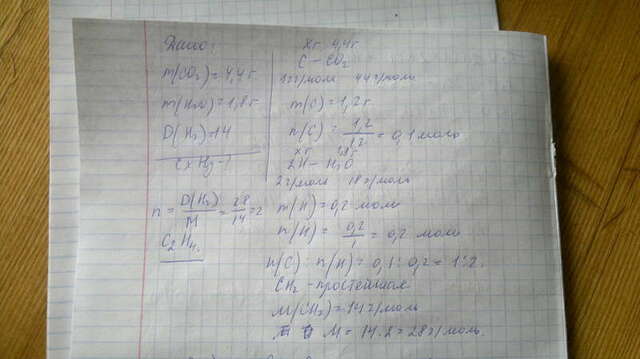 Дано:
m(CO₂)=4,4г
m(H₂O)=1,8г
D(H₂)=14
CxHy-?
n = D(H₂)/M = 28/14 = 2
C₂H₄.
xг 4,4г
C – CO₂
12г/моль 44г/моль
m(C)=1,2г
n(C) = 1,2/12 = 0,1 моль
xг 1,8г
2H – H₂O
2г/моль 18г/моль
m(H) = 0,2 моль
n(H) = 0,2/1 = 0,2 моль
n(C) : n(H) = 0,1 : 0,2 = 1:2.
CH₂ - простейшая
M(CH₂) = 14г/моль
M = 14·2 = 28г/моль.